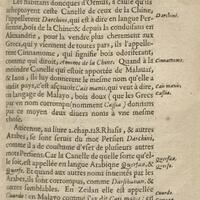 Les habitans doncques d'Ormus, à cause qu'ils
acheptoyent ceste Canelle de ceux de la Chine,
l'appellerent Darchini, qui est à dire en langue Per-
sienne, bois de la Chine: & depuis la conduisans en
Alexandrie, pour la vendre plus cherement aux
Grecs, qui y viennent de toutes pars, ils l'appelle-
rent Cinnamome, qui signifie bois odoriferant,
comme qui diroit, Amome de la Chine. Quand à la
moindre Canelle qui estoit apportée de Malauar,
& Iaoa, ils luy donnerent le mesme nom qu'elle a
audit pays, c'est asçauoir, Cais mani, qui veut à dire,
en langage de Malayo, bois doux (que les Grecs
par vn nom corrompu nomment Cassia) donnans
par ce moyen deux noms à vne mesme chose.
Auicenne, au liure 2. chap. 128. Rhasis, & autres
Arabes, se sont seruis du mot Persien Darchini,
comme il a de coustume d'vser de plusieurs autres
mots Persiens. Car la Canelle de quelle sorte qu'el-
le soit, est appellée en langue Arabique Querfaa, &
Querfe. Et quant aux autres noms imitez des Ara-
bes, ils sont corrompus, comme Darsihahan, &
autres semblables. En Zeilan elle est appellée
Cuurdo
Darchini.
Cinnamome.
Cais mani.
Cassia.
Querfaa.
Querfe.
Cuurdo.